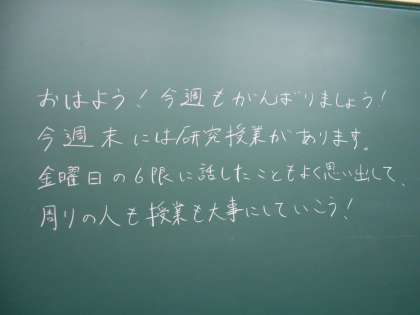 おはよう！今週もがんばりましょう！
今週末には研究授業があります。
金曜日の6限に話したこともよく思い出して、
周りの人も授業も大事にしていこう！